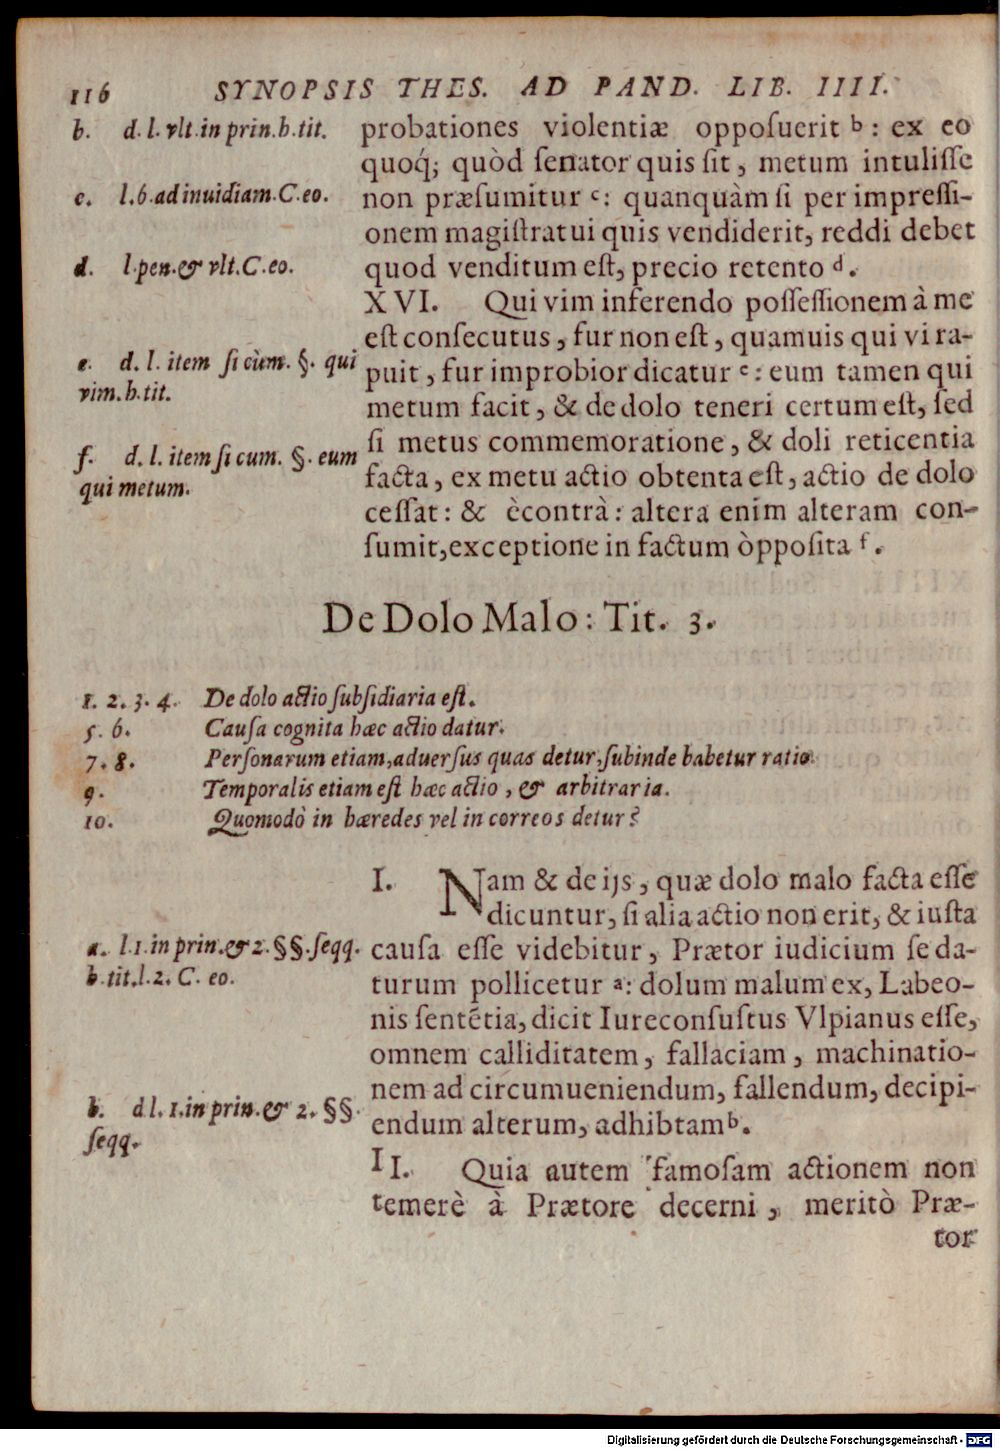 116 SYNOPSIS THES. AD PAND. LIB. IIII.
b. d. l. vlt. in prin. h. tit.
c. l. 6. ad inuidiam. C. eo.
d. l. pen. & vlt. C. eo.
e. d. l. item si cùm. §. qui
vim. h. tit.
f. d. l. item si cum. §. eum
qui metum.
probationes violentiæ opposuerit b : ex eo
quoq́; quòd senator quis sit, metum intulisse
non præsumitur c: quanquàm si per impressi-
onem magistratui quis vendiderit, reddi debet
quod venditum est, precio retento d.
XVI. Qui vim inferendo possessionem à me
est consecutus, fur non est, quamuis qui vi ra-
puit, fur improbior dicatur e: eum tamen qui
metum facit, & de dolo teneri certum est, sed
si metus commemoratione, & doli reticentia
facta, ex metu actio obtenta est, actio de dolo
cessat: & ècontrà: altera enim alteram con-
sumit, exceptione in factum òpposita f.
De Dolo Malo: Tit. 3.
1. 2. 3. 4. De dolo actio subsidiaria est.
5. 6. Causa cognita hæc actio datur.
7. 8. Personarum etiam, aduersus quas detur, subinde habetur ratio.
9. Temporalis etiam est hæc actio, & arbitraria.
10. Quomodò in hæredes vel in correos detur?
a. l. 1. in prin. & 2. §§. seqq.
h. tit. l. 2. C. eo.
b. d l. 1. in prin. & 2. §§.
seqq.
I. Nam & de ijs, quæ dolo malo facta esse
dicuntur, si alia actio non erit, & iusta
causa esse videbitur, Prætor iudicium se da-
turum pollicetur a: dolum malum ex, Labeo-
nis sentẽtia, dicit Iureconsustus Vlpianus esse,
omnem calliditatem, fallaciam, machinatio-
nem ad circumueniendum, fallendum, decipi-
endum alterum, adhibtam b.
II. Quia autem famosam actionem non
temerè à Prætore decerni, meritò Præ-
tor
Digitalisierung gefördert durch die Deutsche Forschungsgemeinschaft - DFG